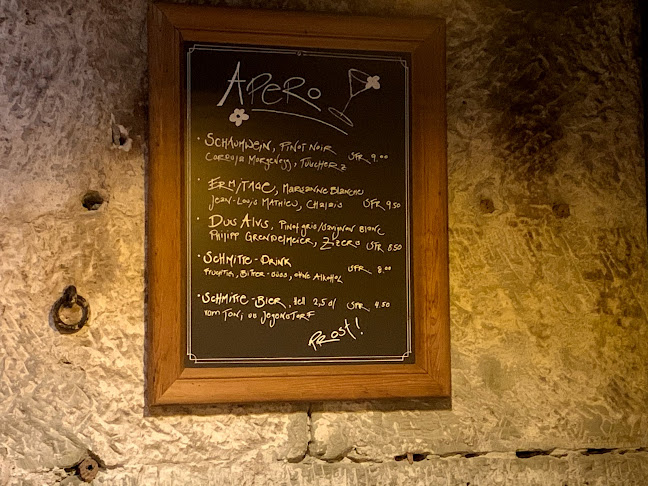 APERO
· SCHAUMWEIN, PINOT NOIR
CORDULA MORGENEGG, TÜÜCHERZ SFR 9.00
· ERMITAGE, MARSANNE BLANCHE
JEAN-LOUIS MATHIEU, CHALAIS SFR 9.50
· DUUS ALVS, PINOT GRIS/SAUVIGNON BLANC
PHILIPP GRENDELMEIER, ZIZERS SFR 8.50
· SCHMITTE-DRINK
FRUCHTIG, BITTER-SÜSS, OHNE ALKOHOL SFR 8.00
· SCHMITTE-BIER, HELL 2,5 dl SFR 4.50
VOM TONI US JEGENSTORF
PROST!